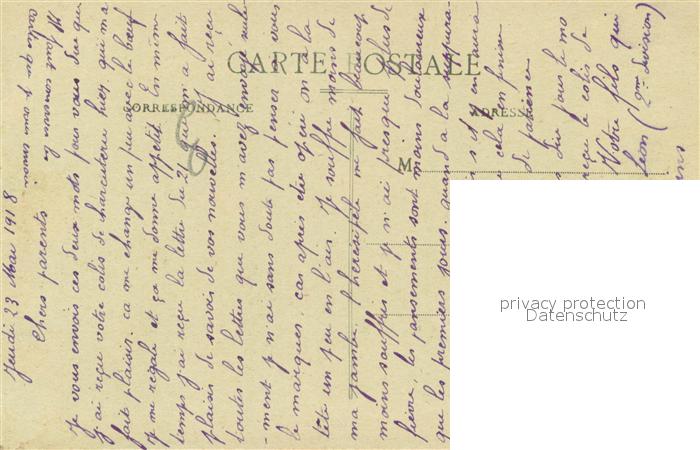 CARTE POSTALE
CORRESPONDANCE
ADRESSE
M
Jeudi 23 Mai 1918
Chers parents
Je vous envois ces deux mots pour vous dire que
j'ai reçu votre colis de charcuterie hier qui m'a
fait plaisir. ça me change un peu avec le bœuf
je me régale et ça me donne appétit. En même
temps j'ai reçu la lettre du 21 qui m'a fait
plaisir de savoir de vos nouvelles. j'ai reçu
toutes les lettres que vous m'avez envoyé seule
-ment je n'ai sans doute pas penser à vous
le marquer. car après être opéré on a la
tête un peu en l'air. Je souffre moins de
ma jambe. l'hérésipèle me fait beaucoup
moins souffrir et je n'ai presque plus de
fièvre, les pansements sont moins douloureux
que les premiers jours. quand à la
s et y en aura
cela en finira
de patience
dir pour le mo
reçu le colis de
Votre fils qui
Léon (2me Division)
ens
Il fait comme le
cartes que j'aime
privacy protection
Datenschutz